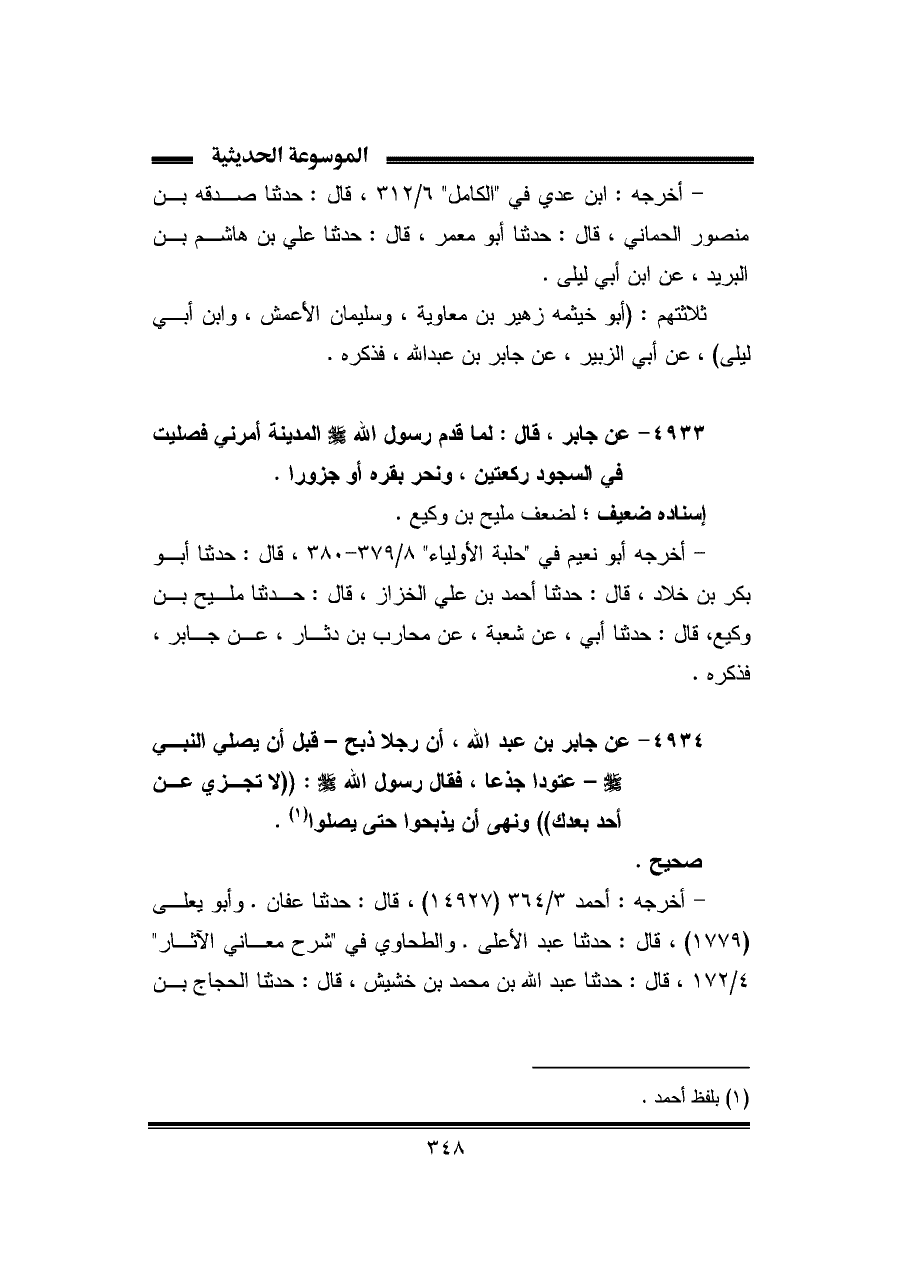 الموسوعة الحديثية
- أخرجه : ابن عدي في "الكامل" ٣١٢/٦ ، قال : حدثنا صدقه بن
منصور الحماني ، قال : حدثنا أبو معمر ، قال : حدثنا علي بن هاشم بن
البريد ، عن ابن أبي ليلى .
ثلاثتهم : (أبو خيثمه زهير بن معاوية ، وسليمان الأعمش ، وابن أبي
ليلى) ، عن أبي الزبير ، عن جابر بن عبدالله ، فذكره .
٤٩٣٣- عن جابر ، قال : لما قدم رسول الله ﷺ المدينة أمرني فصليت
في السجود ركعتين ، ونحر بقره أو جزورا .
إسناده ضعيف ؛ لضعف مليح بن وكيع .
- أخرجه أبو نعيم في "حلبة الأولياء" ٣٧٩/٨-٣٨٠ ، قال : حدثنا أبو
بكر بن خلاد ، قال : حدثنا أحمد بن علي الخزاز ، قال : حدثنا مليح بن
وكيع، قال : حدثنا أبي ، عن شعبة ، عن محارب بن دثار ، عن جابر ،
فذكره .
٤٩٣٤- عن جابر بن عبد الله ، أن رجلا ذبح – قبل أن يصلي النبي
ﷺ – عتودا جذعا ، فقال رسول الله ﷺ : ((لا تجزي عن
أحد بعدك)) ونهى أن يذبحوا حتى يصلوا(١) .
صحيح .
- أخرجه : أحمد ٣٦٤/٣ (١٤٩٢٧) ، قال : حدثنا عفان . وأبو يعلى
(١٧٧٩) ، قال : حدثنا عبد الأعلى . والطحاوي في "شرح معاني الآثار"
١٧٢/٤ ، قال : حدثنا عبد الله بن محمد بن خشيش ، قال : حدثنا الحجاج بن
(١) بلفظ أحمد .
٣٤٨